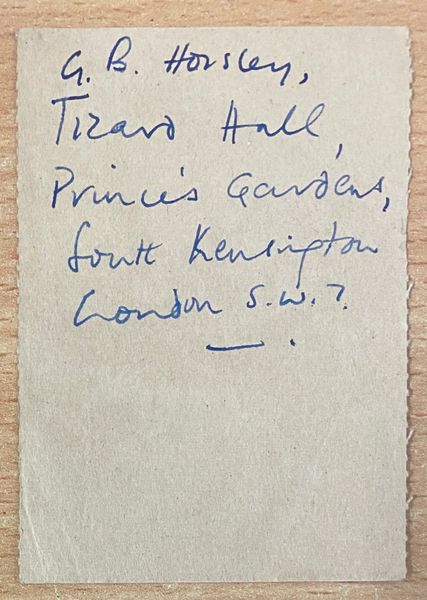 G. B. Horsley,
Tizard Hall,
Prince's Gardens,
South Kensington
London S.W.7.